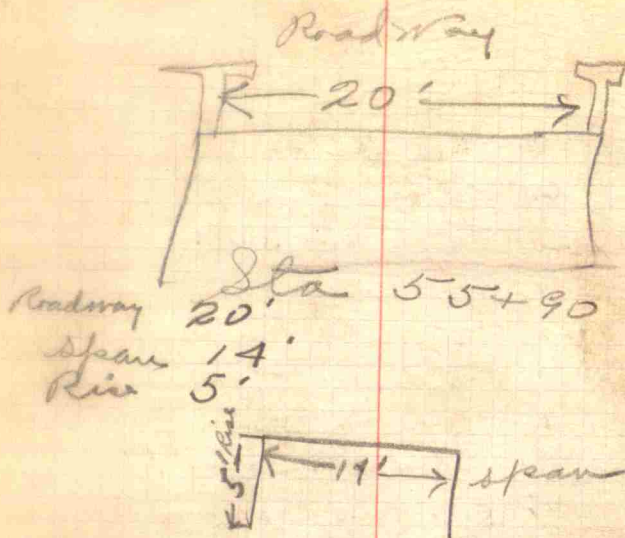 Road Way
20'
Sta 55+90
Roadway 20'
Span 14'
Rise 5'
5' Rise
14'
span